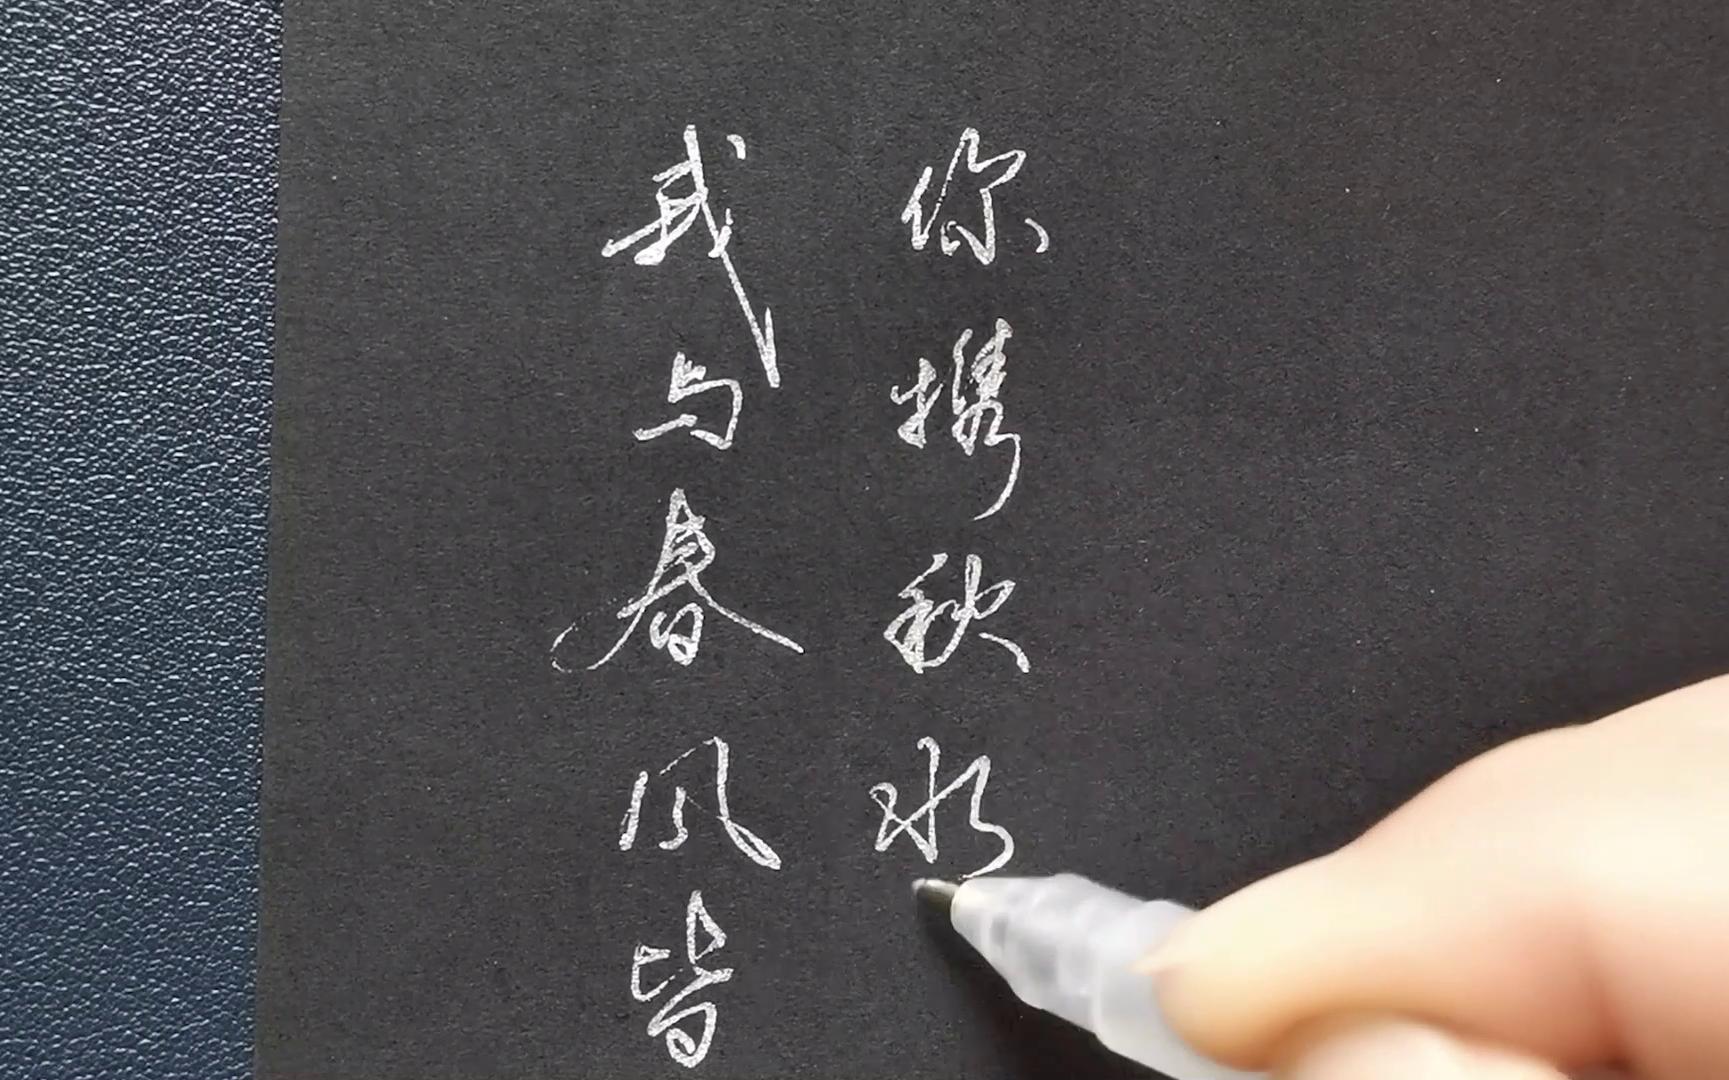 我与春风皆
你携秋水